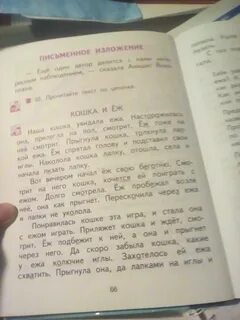 ПИСЬМЕННОЕ ИЗЛОЖЕНИЕ
— Ещё один автор делится с нами
наблюдением, — сказала Анишит
Прочитайте текст по цепочке.
КОШКА И ЁЖ
Наша кошка увидала ежа. Насторожилась
она, прилегла на пол, смотрит. Ёж тоже на
неё смотрит. Прыгнула кошка, тронула лапкой
ежа. Ёж спрятал голову и подставил свои
иглы. Наколола кошка лапку, отошла, села и
лапку лижет.
Вот вечером начал ёж свою беготню. Смо-
трит на него кошка, хочется ей поиграть с
ежом. Долго смотрела. Ёж пробежал возле
неё, она как прыгнет. Перескочила через ежа
и лапки не уколола.
Понравилась кошке эта игра, и стала она
с ежом играть. Приляжет кошка и ждёт, смо-
трит. Ёж подбежит к ней, а она и прыгнет
через него. Да скоро забыла кошка, какие
у ежа колючие иглы. Захотелось ей ежа
схватить. Прыгнула она, да лапками на иглы и
66